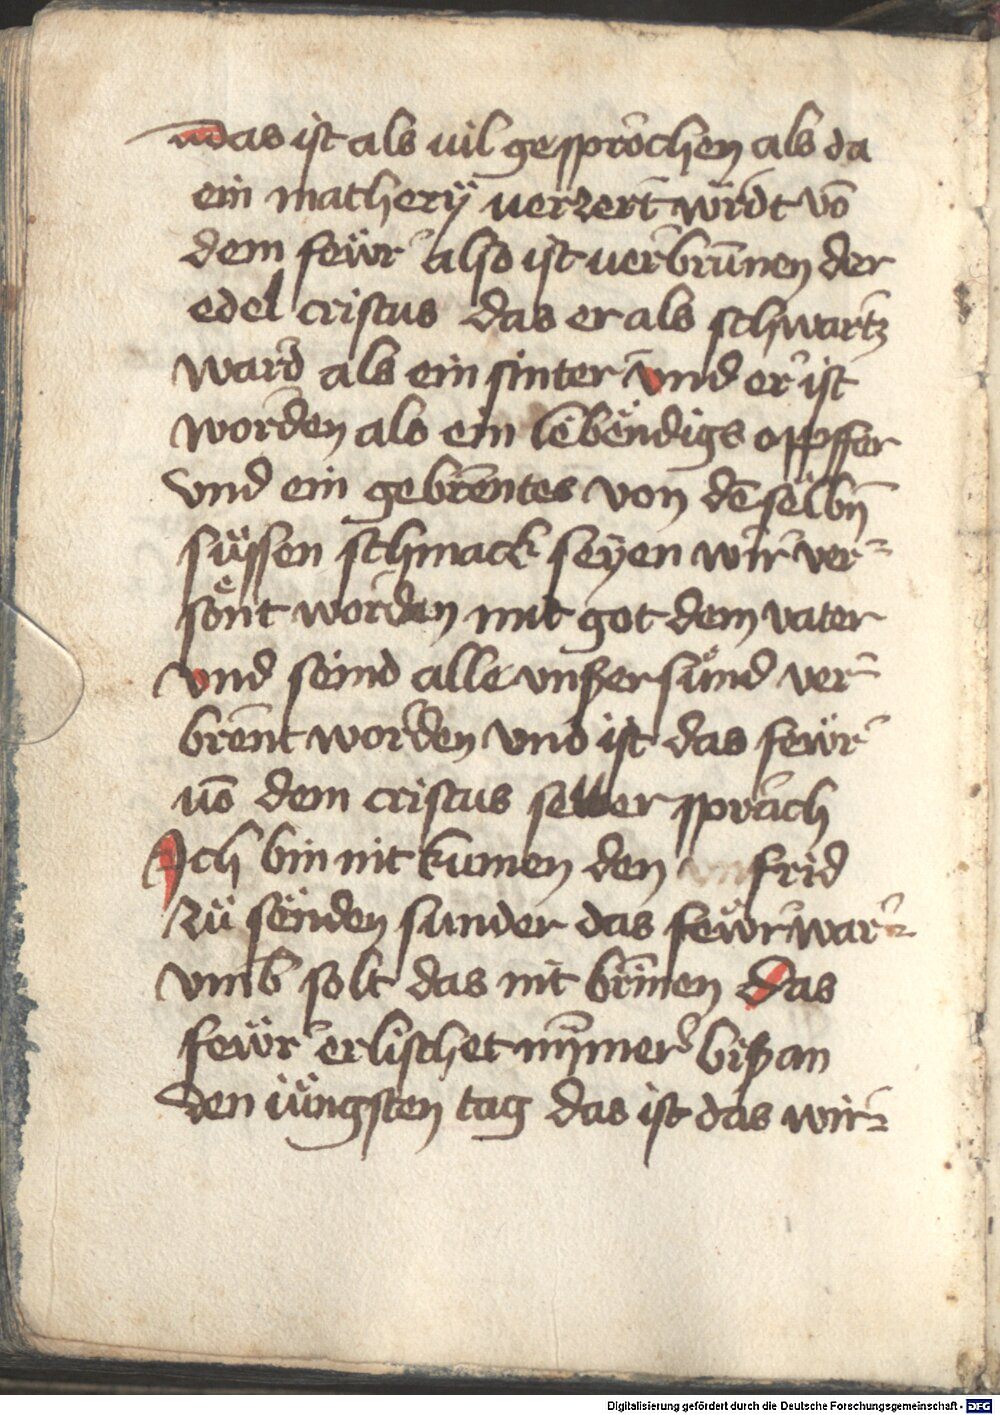 das ist als uil gesprochen als da
ein matherÿ uerzert wirdt vō
dem feẅr also ist uerbrūnen der
edel cristus das er als schwartz
ward als ein sinter vnd er ist
worden als ein lebendigs oppffer
vnd ein gebrentes von dē selbn̄
süssen schmack seyen wir ver=
sönt worden mit got dem vater
vnd seind alle vnßer sünd ver=
brent worden vnd ist das feẅr
uō dem cristus selber sprach
Ich bin nit kumen den frid
zü senden sunder das feẅr war=
vmb solt das nit brinen Das
feẅr erlischet nymer biß an
den iüngsten tag das ist das wir
Digitalisierung gefördert durch die Deutsche Forschungsgemeinschaft - DFG